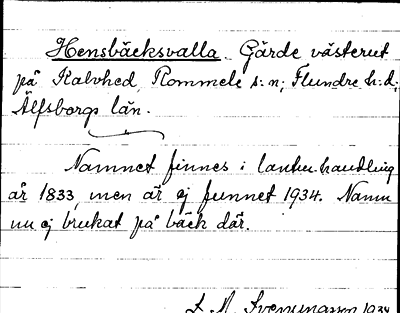 Hensbäcksvalla. Gärde västerut
på Kalvhed, Rommele s:n; Flundre h:d;
Älfsborgs län.
Namnet finnes i lantm. handling
år 1833, men är ej funnet 1934. Namn
nu ej brukat på bäck där.
1934